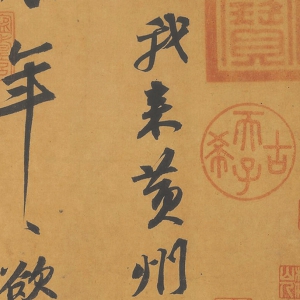 我来黄州
年、欲
古希天子
寶